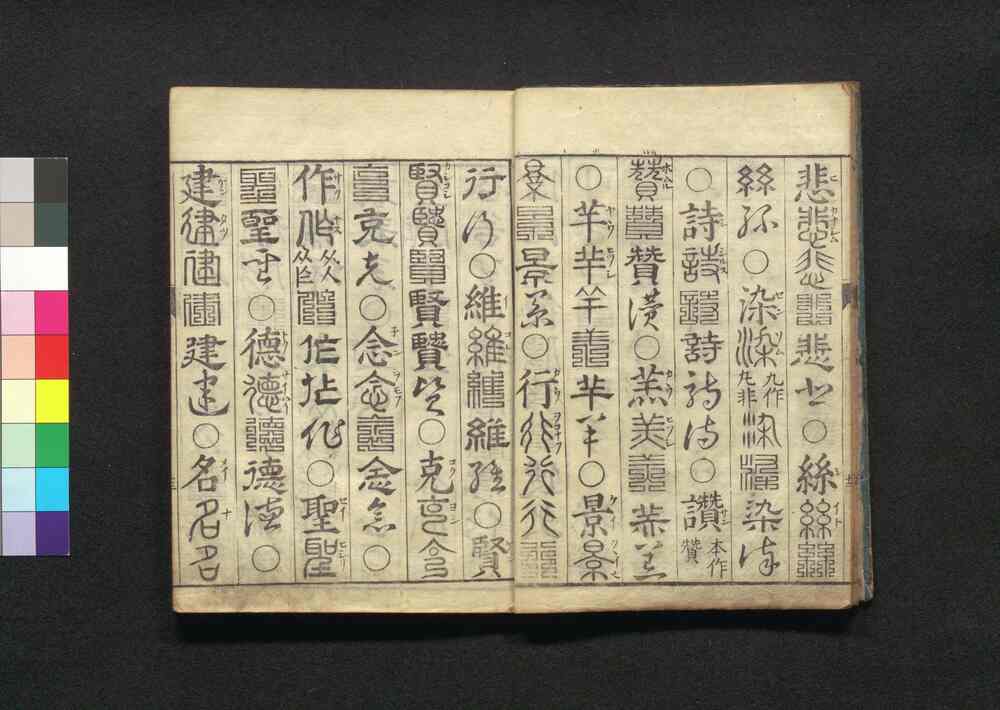 悲悲悲悲悲悲○絲絲絲
絲絲○染染染染染染
○詩詩詩詩詩詩○讃本作贊
贊贊贊贊○羔羔羔羔羔
○羊羊羊羊羊羊○景景
景景景景○行行行行行
行行○維維維維維○賢
賢賢賢賢賢賢○克克克
克克克○念念念念念○
作作作作作作○聖聖
聖聖聖○德德德德德○
建建建建建建○名名名